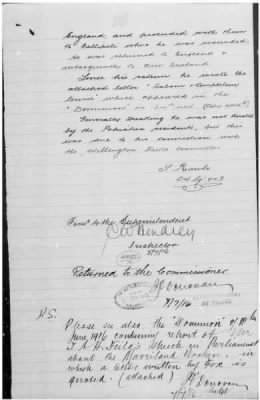 England, and proceeded with them
to Gallipoli where he was wounded.
He was returned to England &
subsequently to New Zealand.
Since his return he wrote the
attached letter "Labour & Compulsory
" which appeared in the
"Dominion" of
Generally speaking he was not trusted
by the Petone residents, but this
was due to his connection with
the Wellington Committee.
Forwd to the Superintendent
Inspector
5/7/16
Returned to the Commissioner
J Donovan
7/7/16
P.S.
Please see also the "Dominion" of
June 1916 containing report of Mr
T. A. H. Field's speech in Parliament
about the Maoriland Worker, in
which a letter written by Fox is
quoted. (attached) J Donovan
7/7/16 Supt